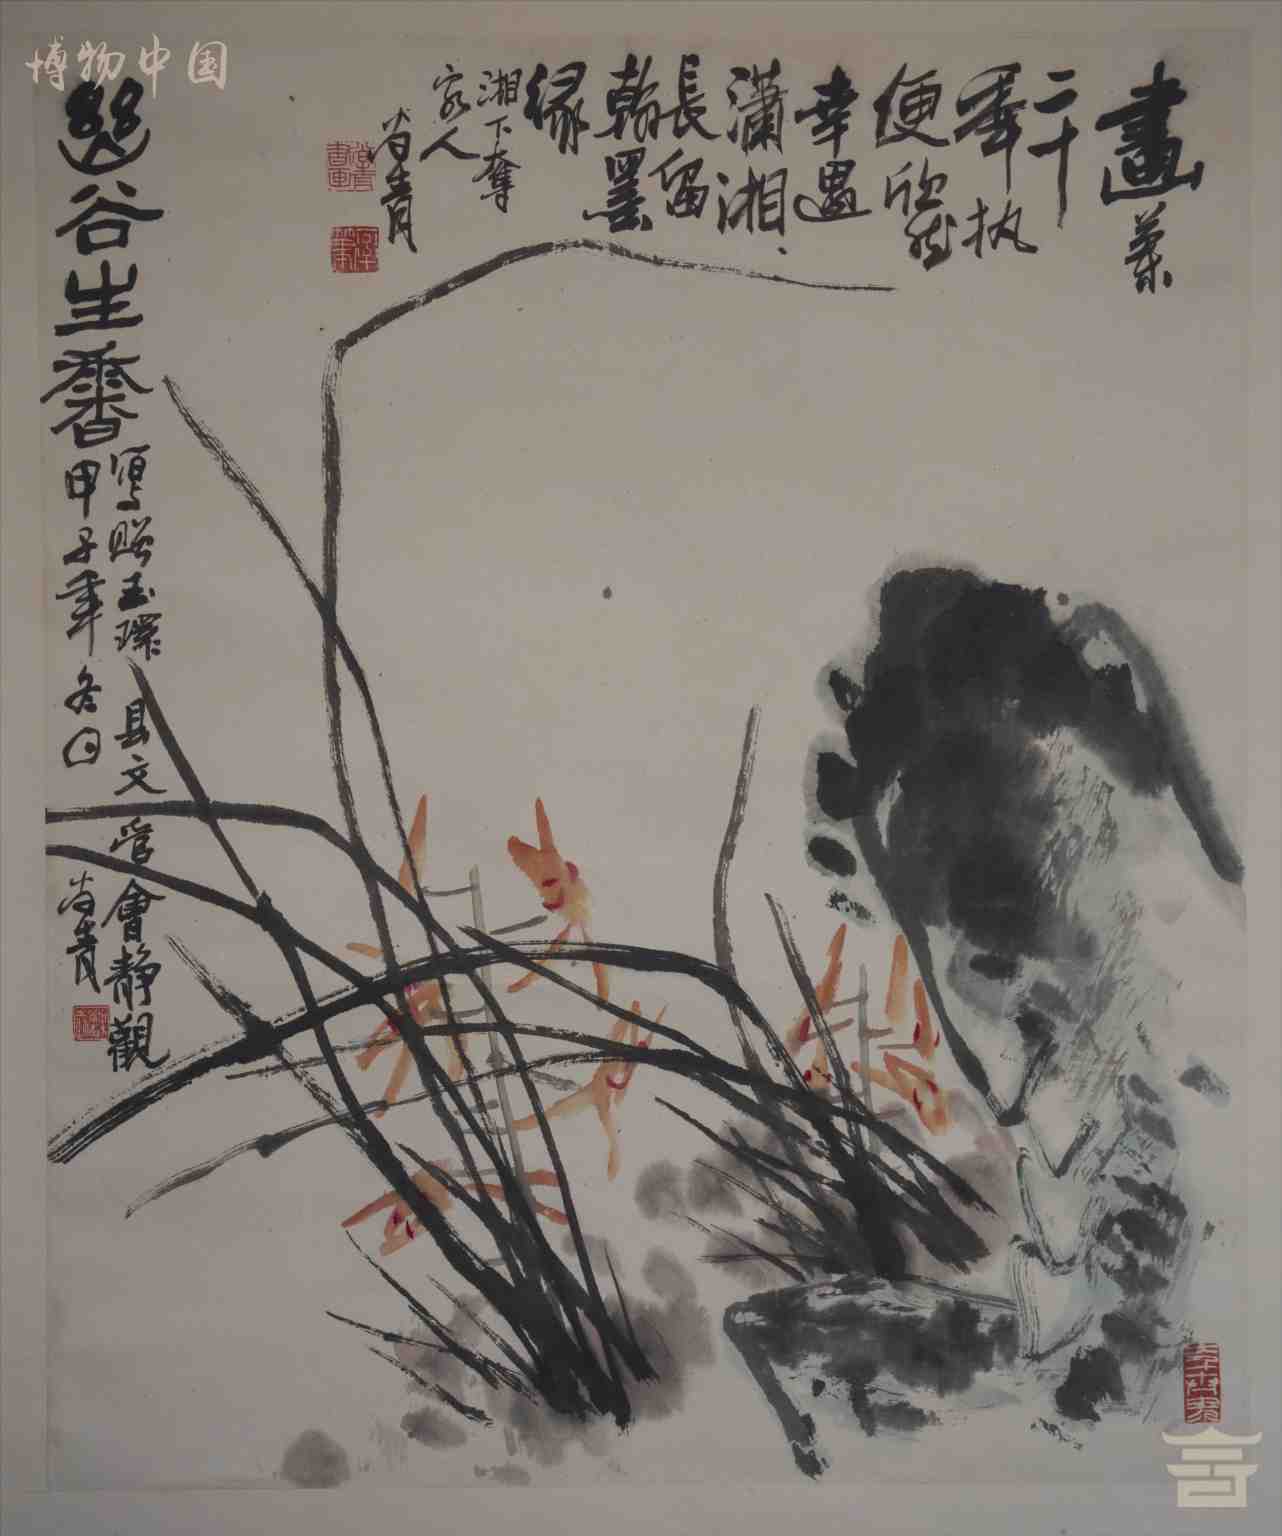 博物中国
畫蘭
二十
年执
便欣然
幸遇
瀟湘
長留
翰墨
緣
湘下奪
家人
尚青
幽谷生馨
寫贈玉環县文管會静觀
甲子年冬日
尚青